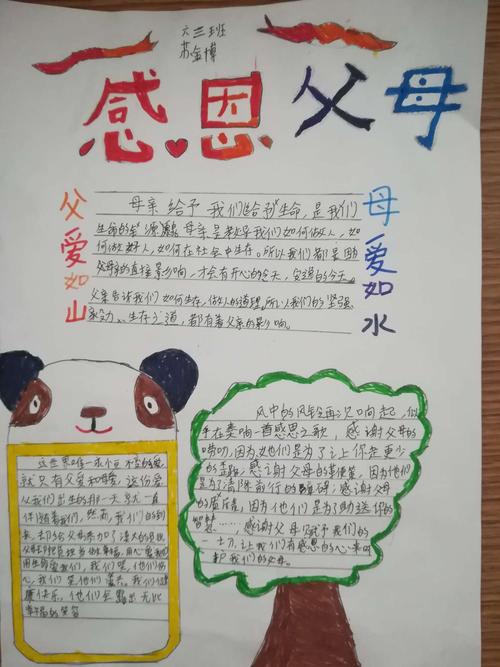 六三班
苏金博
感恩父母
父爱如山
母爱如水
母亲给予我们生命,是我们
生命的源,母亲是教导我们如何做人,如
何做好人,如何在社会中生存。所以我们都是因
父母亲的直接影响,才会有开心的冬天,安逸的今天。
父亲告诉我们如何生存,做人的道理,所以我们的坚强
努力、生存之道,都有着父亲的影响。
这世界唯一永恒不变的爱,
就只有父爱和母爱,这份爱
从我们出生的那一天早就一直
伴随着我们,然而,我们的到
来,却给父母添加了
用生命爱我们,我们哭,他们伤
心,我们笑他们 我们健
康快乐,他们会露出无比
幸福的笑容
风中的风铃再次响起,似
乎在奏响一首感恩之歌,感谢父母的
唠叨,因为她们是为了让你走更少
的弯路,感谢父母的 因为他们
是为了清除前行的障碍;感谢父母
的 因为他们是为了助送你的
智慧……,感谢父母赋予我们的
一切,让我们有感恩的心来
我们的父母。